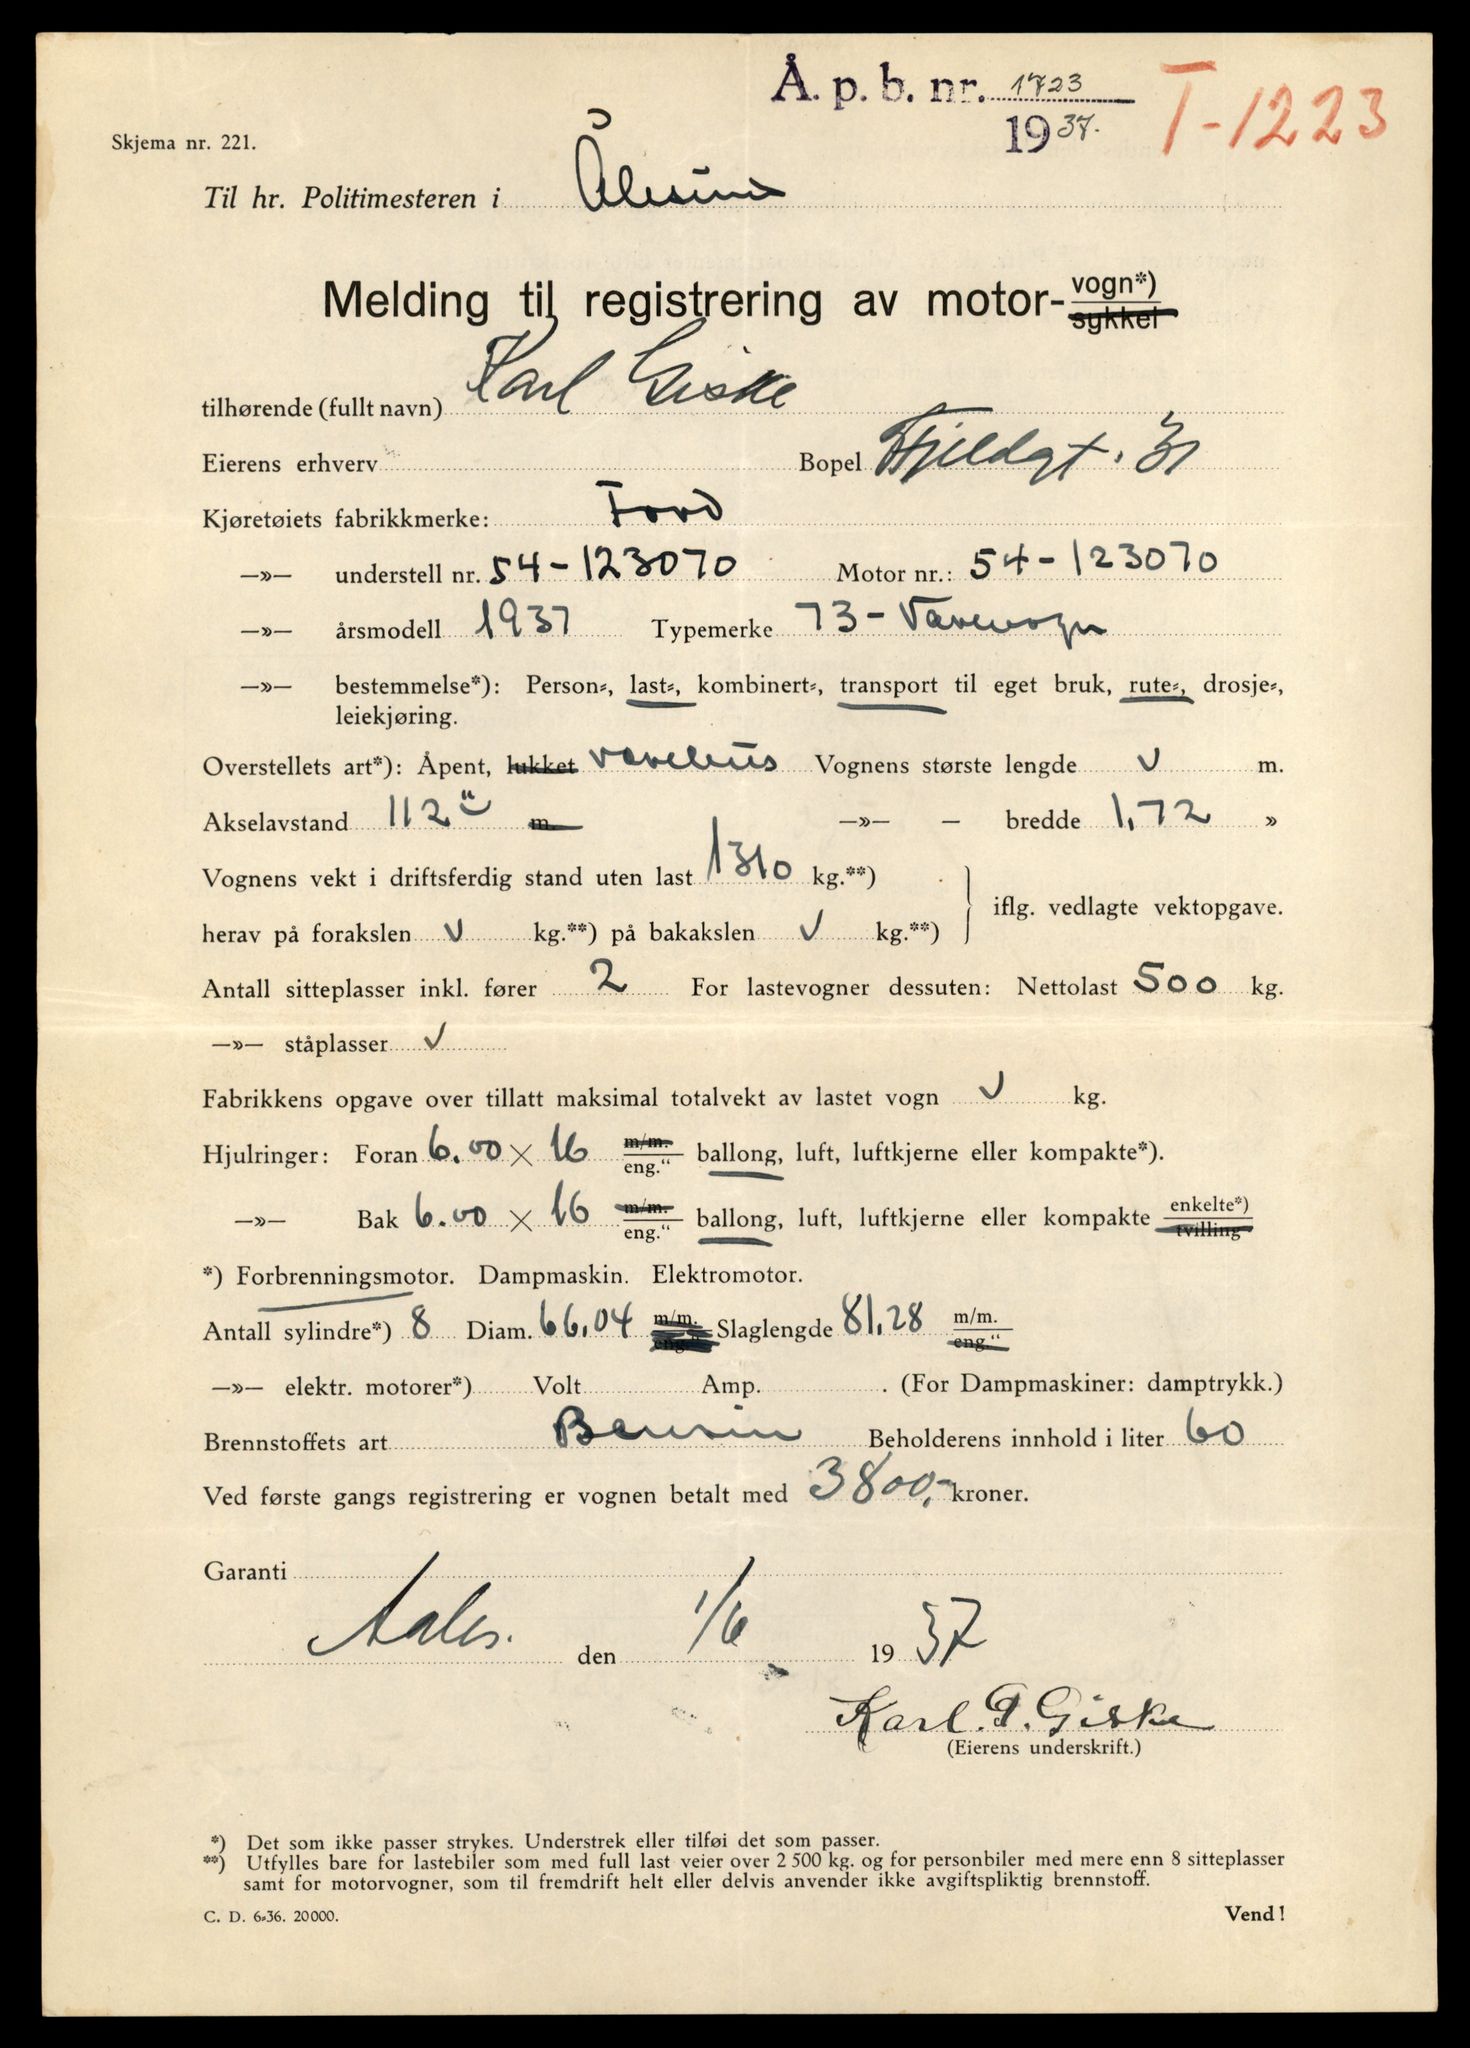 Å. p. b. nr. 1723
1937.
T-1223
Skjema nr. 221.
Til hr. Politimesteren i Ålesund
Melding til registrering av motor-vogn*)
sykkel
tilhørende (fullt navn) Karl Giske
Eierens erhverv Bopel Fjeldgt. 31
Kjøretøiets fabrikkmerke: Ford
—»— understell nr. 54-123070 Motor nr.: 54-123070
—»— årsmodell 1937 Typemerke 73- Varevogn
—»— bestemmelse*): Person-, last-, kombinert-, transport til eget bruk, rute-, drosje-,
leiekjøring.
Overstellets art*): Åpent, lukket varehus Vognens største lengde √ m.
Akselavstand 112" m —»— — bredde 1,72 »
Vognens vekt i driftsferdig stand uten last 1310 kg.**)
iflg. vedlagte vektopgave.
herav på forakslen √ kg.**) på bakakslen √ kg.**)
Antall sitteplasser inkl. fører 2 For lastevogner dessuten: Nettolast 500 kg.
—»— ståplasser √
Fabrikkens opgave over tillatt maksimal totalvekt av lastet vogn √ kg.
Hjulringer: Foran 6.00 × 16 m/m. eng.“ ballong, luft, luftkjerne eller kompakte*).
—»— Bak 6.00 × 16 m/m. eng.“ ballong, luft, luftkjerne eller kompakte enkelte*) tvilling
*) Forbrenningsmotor. Dampmaskin. Elektromotor.
Antall sylindre*) 8 Diam. 66,04 m/m. eng.“ Slaglengde 81,28 m/m. eng.“
—»— elektr. motorer*) Volt Amp. . (For Dampmaskiner: damptrykk.)
Brennstoffets art Bensin Beholderens innhold i liter 60
Ved første gangs registrering er vognen betalt med 3800,- kroner.
Garanti
Aales. den 1/6 1937
Karl. P. Giske
(Eierens underskrift.)
*) Det som ikke passer strykes. Understrek eller tilføi det som passer.
**) Utfylles bare for lastebiler som med full last veier over 2 500 kg. og for personbiler med mere enn 8 sitteplasser
samt for motorvogner, som til fremdrift helt eller delvis anvender ikke avgiftspliktig brennstoff.
C. D. 6-36. 20000. Vend !